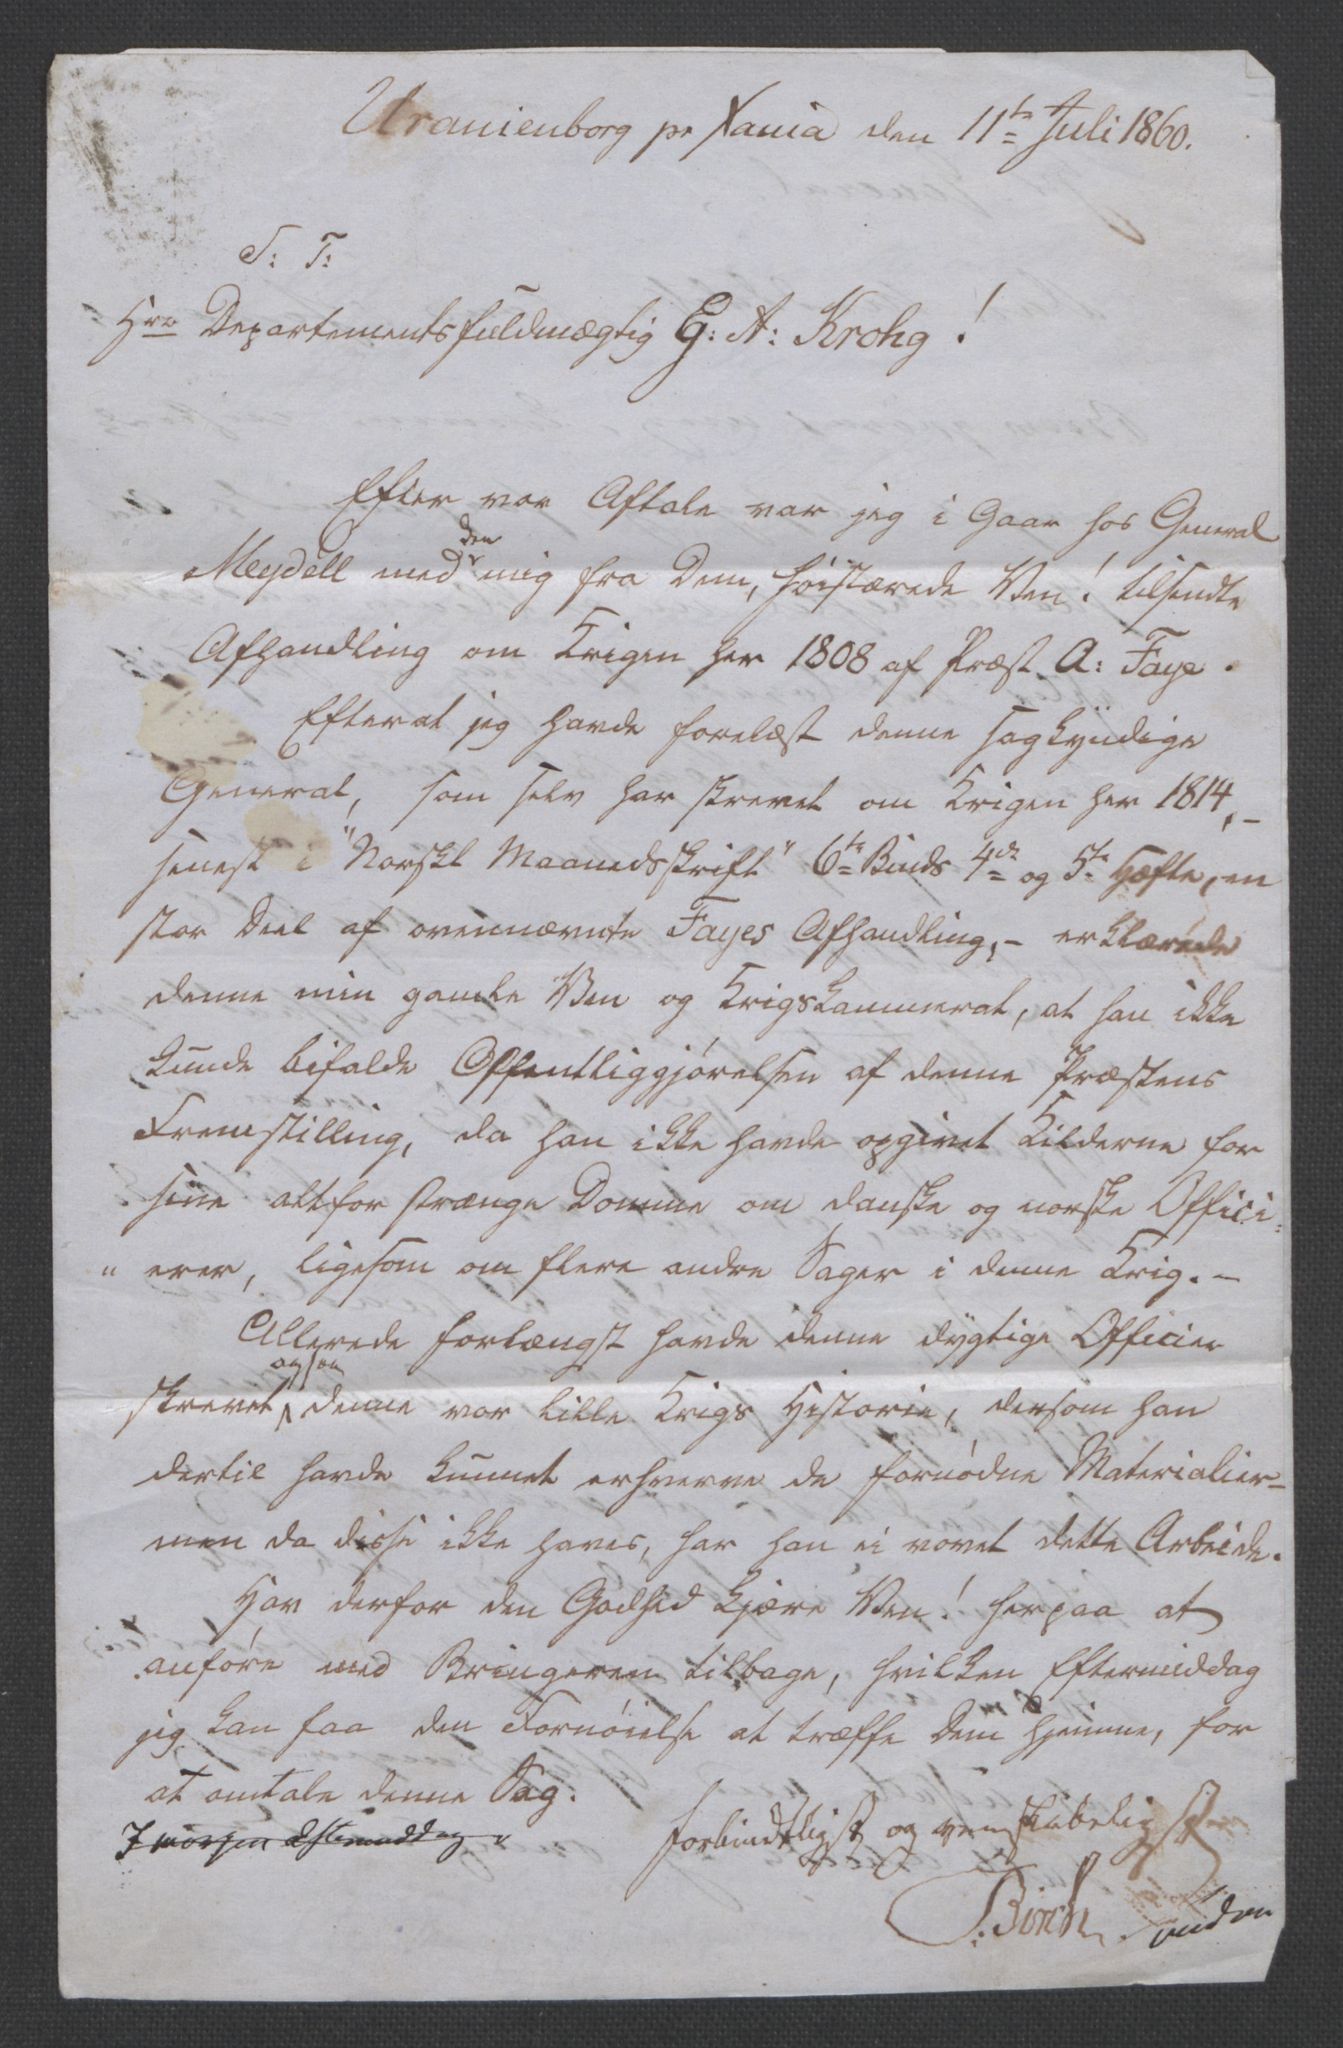 Uranienborg pr Xania den 11te Juli 1860.
S: T:
Hrr Departementsfuldmægtig G: A: Krohg!
Efter vor Aftale var jeg i Gaar hos General
den
Meydell med mig fra Dem, høistærede Ven! tilsendte
Afhandling om Krigen her 1808 af Præst A: Faye.
Efterat jeg havde forelæst denne sagkyndige
General, som selv har skrevet om Krigen her 1814,-
senest i "Norskt Maanedsskrift" 6te Binds 4de og 5te Hefte, en
stor Deel af ovennævnte Fayes Afhandling,- erklærede
denne min gamle Ven og Krigskammerat, at han ikke
kunde bifalde Offentliggjørelsen af denne Præstens
Fremstilling, da han ikke havde opgivet Kilderne for
sine altfor strænge Domme om danske og norske Offici-
"erer, ligesom om flere andre Sager i denne Krig. -
Allerede forlængst havde denne dygtige Officier
ogsaa
skrevet denne vor lille Krigs Historie, dersom han
dertil havde kunnet erhverve de fornødne Materialier-
men da disse ikke haves, har han ei vovet dette Arbeide.
Hav derfor den Godhed kjære Ven! herpaa at
anføre med Bringeren tilbage, hvilken Eftermiddag
jeg kan faa den Fornøielse at træffe Dem hjemme, for
at omtale denne Sag.
I morgen Eftermiddag
forbindtligst og venskabeligst
Birch